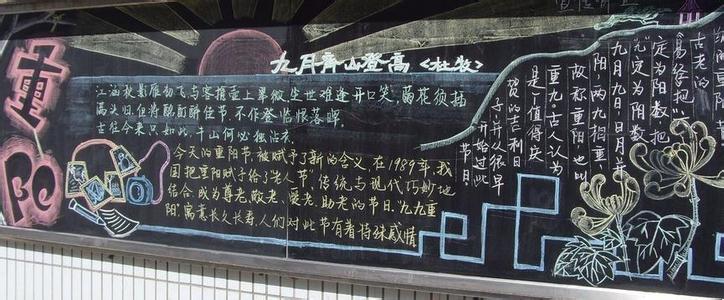 重阳
九月齐山登高<杜牧>
江涵秋影雁初飞与客携壶上翠微.尘世难逢开口笑,菊花须插
满头归.但将酩酊酬佳节,不作登临恨落晖.
古往今来只如此,牛山何必独沾衣.
今天的重阳节,被赋予了新的含义,在1989年,我
国把重阳赋予给了"老人节".传统与现代巧妙地
结合,成为尊老,敬老,爱老,助老的节日."九九重
阳"寓意长久长寿,人们对此节有着特殊感情
古老的
《易经》把
定为阳数,把
"九"定为阳数.
九月九日,日月并
阳,两九相重
故称重阳,也叫
重九.古人认为
是个值得庆
贺的吉利日
子,并从很早
开始过此
节日.